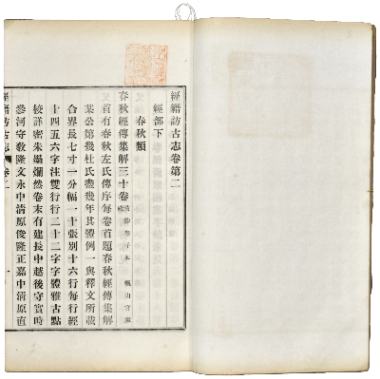 經籍訪古志卷第二
經部下
春秋類
春秋經傳集解三十卷 楓山官庫
首有春秋左氏傳序每卷首題春秋經傳集解
某公第幾杜氏盡幾年其體例一與釋文所載
合界長七寸一分幅一十張別十六行每行經
十四五六字注雙行行二十二字字體雅古點
校詳密朱墨爛然卷末有建長中越後守實時
參河守教隆文永中清原俊隆正嘉中清原直
經籍訪古志 卷二
一